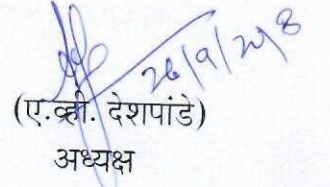 26/9/2018
(ए.व्ही. देशपांडे)
अध्यक्ष